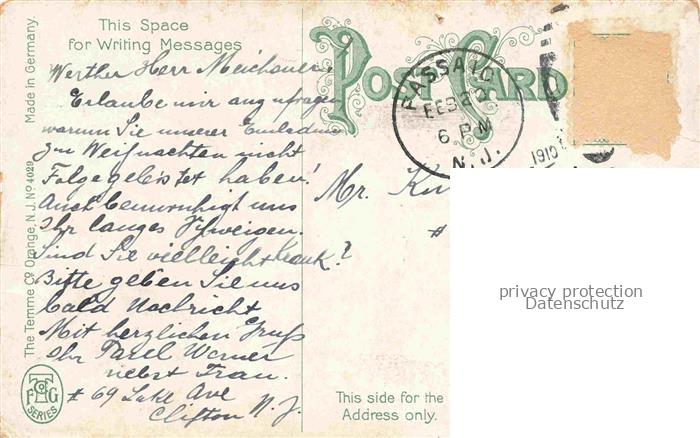 This Space
for Writing Messages
Werther Herr Meichsner.
Erlaube mir anzufragen
warum Sie unserer Einladung
zu Weihnachten nicht
Folge geleistet haben!
Auch beunruhigt uns
Ihr langes Schweigen.
Sind Sie vielleicht krank?
Bitte geben Sie uns
bald Nachricht
Mit herzlichen Gruß
Ihr Werner
nebst Frau.
# 69 Lake Ave
Clifton N. J.
Made in Germany.
The Temme Co. Orange, N.J. No 4029
T Co F G
SERIES
POST CARD
PASSAIC
FEB 22
6 PM
N. J.
1910
Mr.
#
This side for the
Address only.
privacy protection
Datenschutz